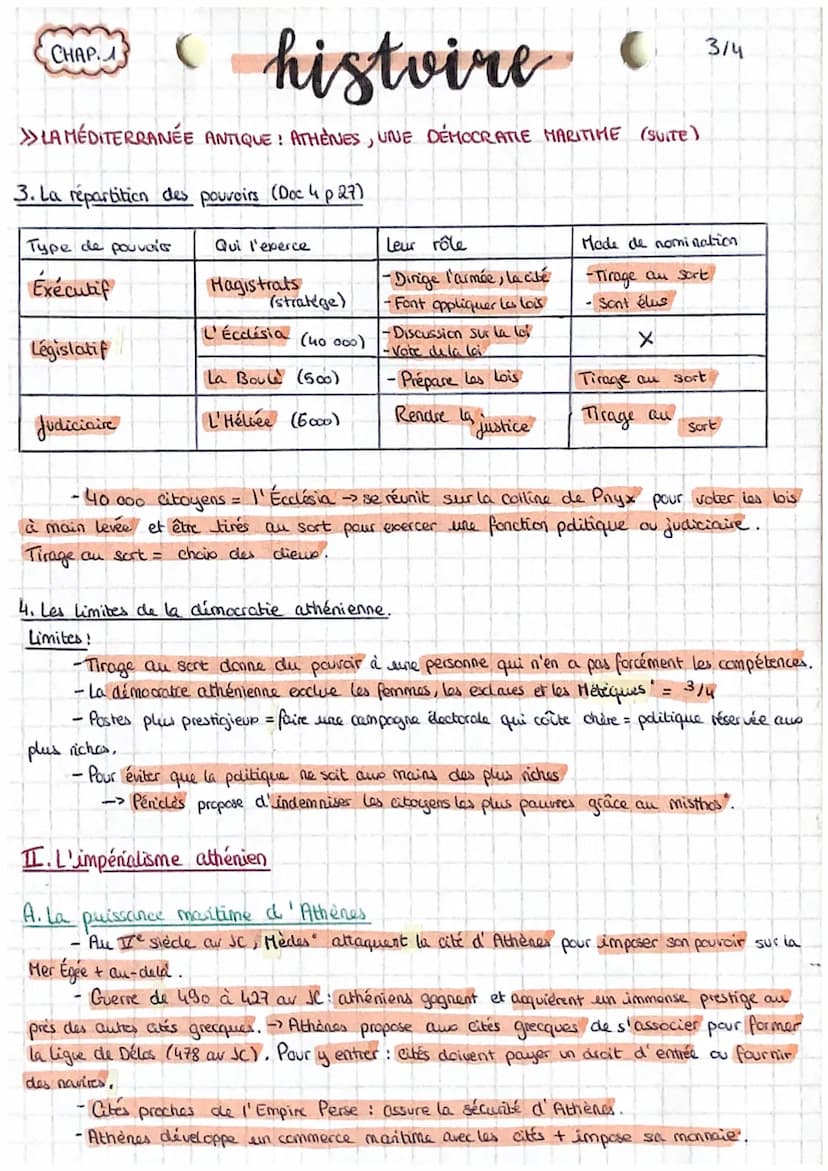 CHAP. 1
histoire
3/4
>> LA MÉDITERRANÉE ANTIQUE : ATHÈNES, UNE DÉMOCRATIE MARITIME (SUITE)
3. La répartition des pouvoirs (Doc 4 p 27)
Type de pouvoirs | Qui l'exerce | Leur rôle | Mode de nomination
Éxécutif | Magistrats (stratège) | - Dirige l'armée, la cité - Font appliquer les lois | - Tirage au sort - Sont élus
Législatif | L'Écclésia (40 000) | - Discussion sur la loi - Vote de la loi | X
La Boulè (500) | - Prépare les lois | Tirage au sort
Judiciaire | L'Héliée (6000) | Rendre la justice | Tirage au sort
- 40 000 citoyens = l'Écclésia → se réunit sur la colline de Pnyx pour voter les lois
à main levée et être tirés au sort pour exercer une fonction politique ou judiciaire.
Tirage au sort = choix des dieux.
4. Les limites de la démocratie athénienne.
Limites :
- Tirage au sort donne du pouvoir à une personne qui n'en a pas forcément les compétences.
- La démocratie athénienne exclue les femmes, les esclaves et les Métèques* = 3/4
- Postes plus prestigieux = faire une campagne électorale qui coûte chère = politique réservée aux
plus riches.
- Pour éviter que la politique ne soit aux mains des plus riches
→ Périclès propose d'indemniser les citoyens les plus pauvres grâce au misthos*.
II. L'impérialisme athénien
A. La puissance maritime d'Athènes
- Au Ve siècle av JC, Mèdes* attaquent la cité d'Athènes pour imposer son pouvoir sur la
Mer Égée + au-delà.
- Guerre de 490 à 427 av JC : athéniens gagnent et acquièrent un immense prestige au
près des autres cités grecques. → Athènes propose aux cités grecques de s'associer pour former
la Ligue de Délos (478 av JC). Pour y entrer : cités doivent payer un droit d'entrée ou fournir
des navires.
- Cités proches de l'Empire Perse : assure la sécurité d'Athènes.
- Athènes développe un commerce maritime avec les cités + impose sa monnaie.